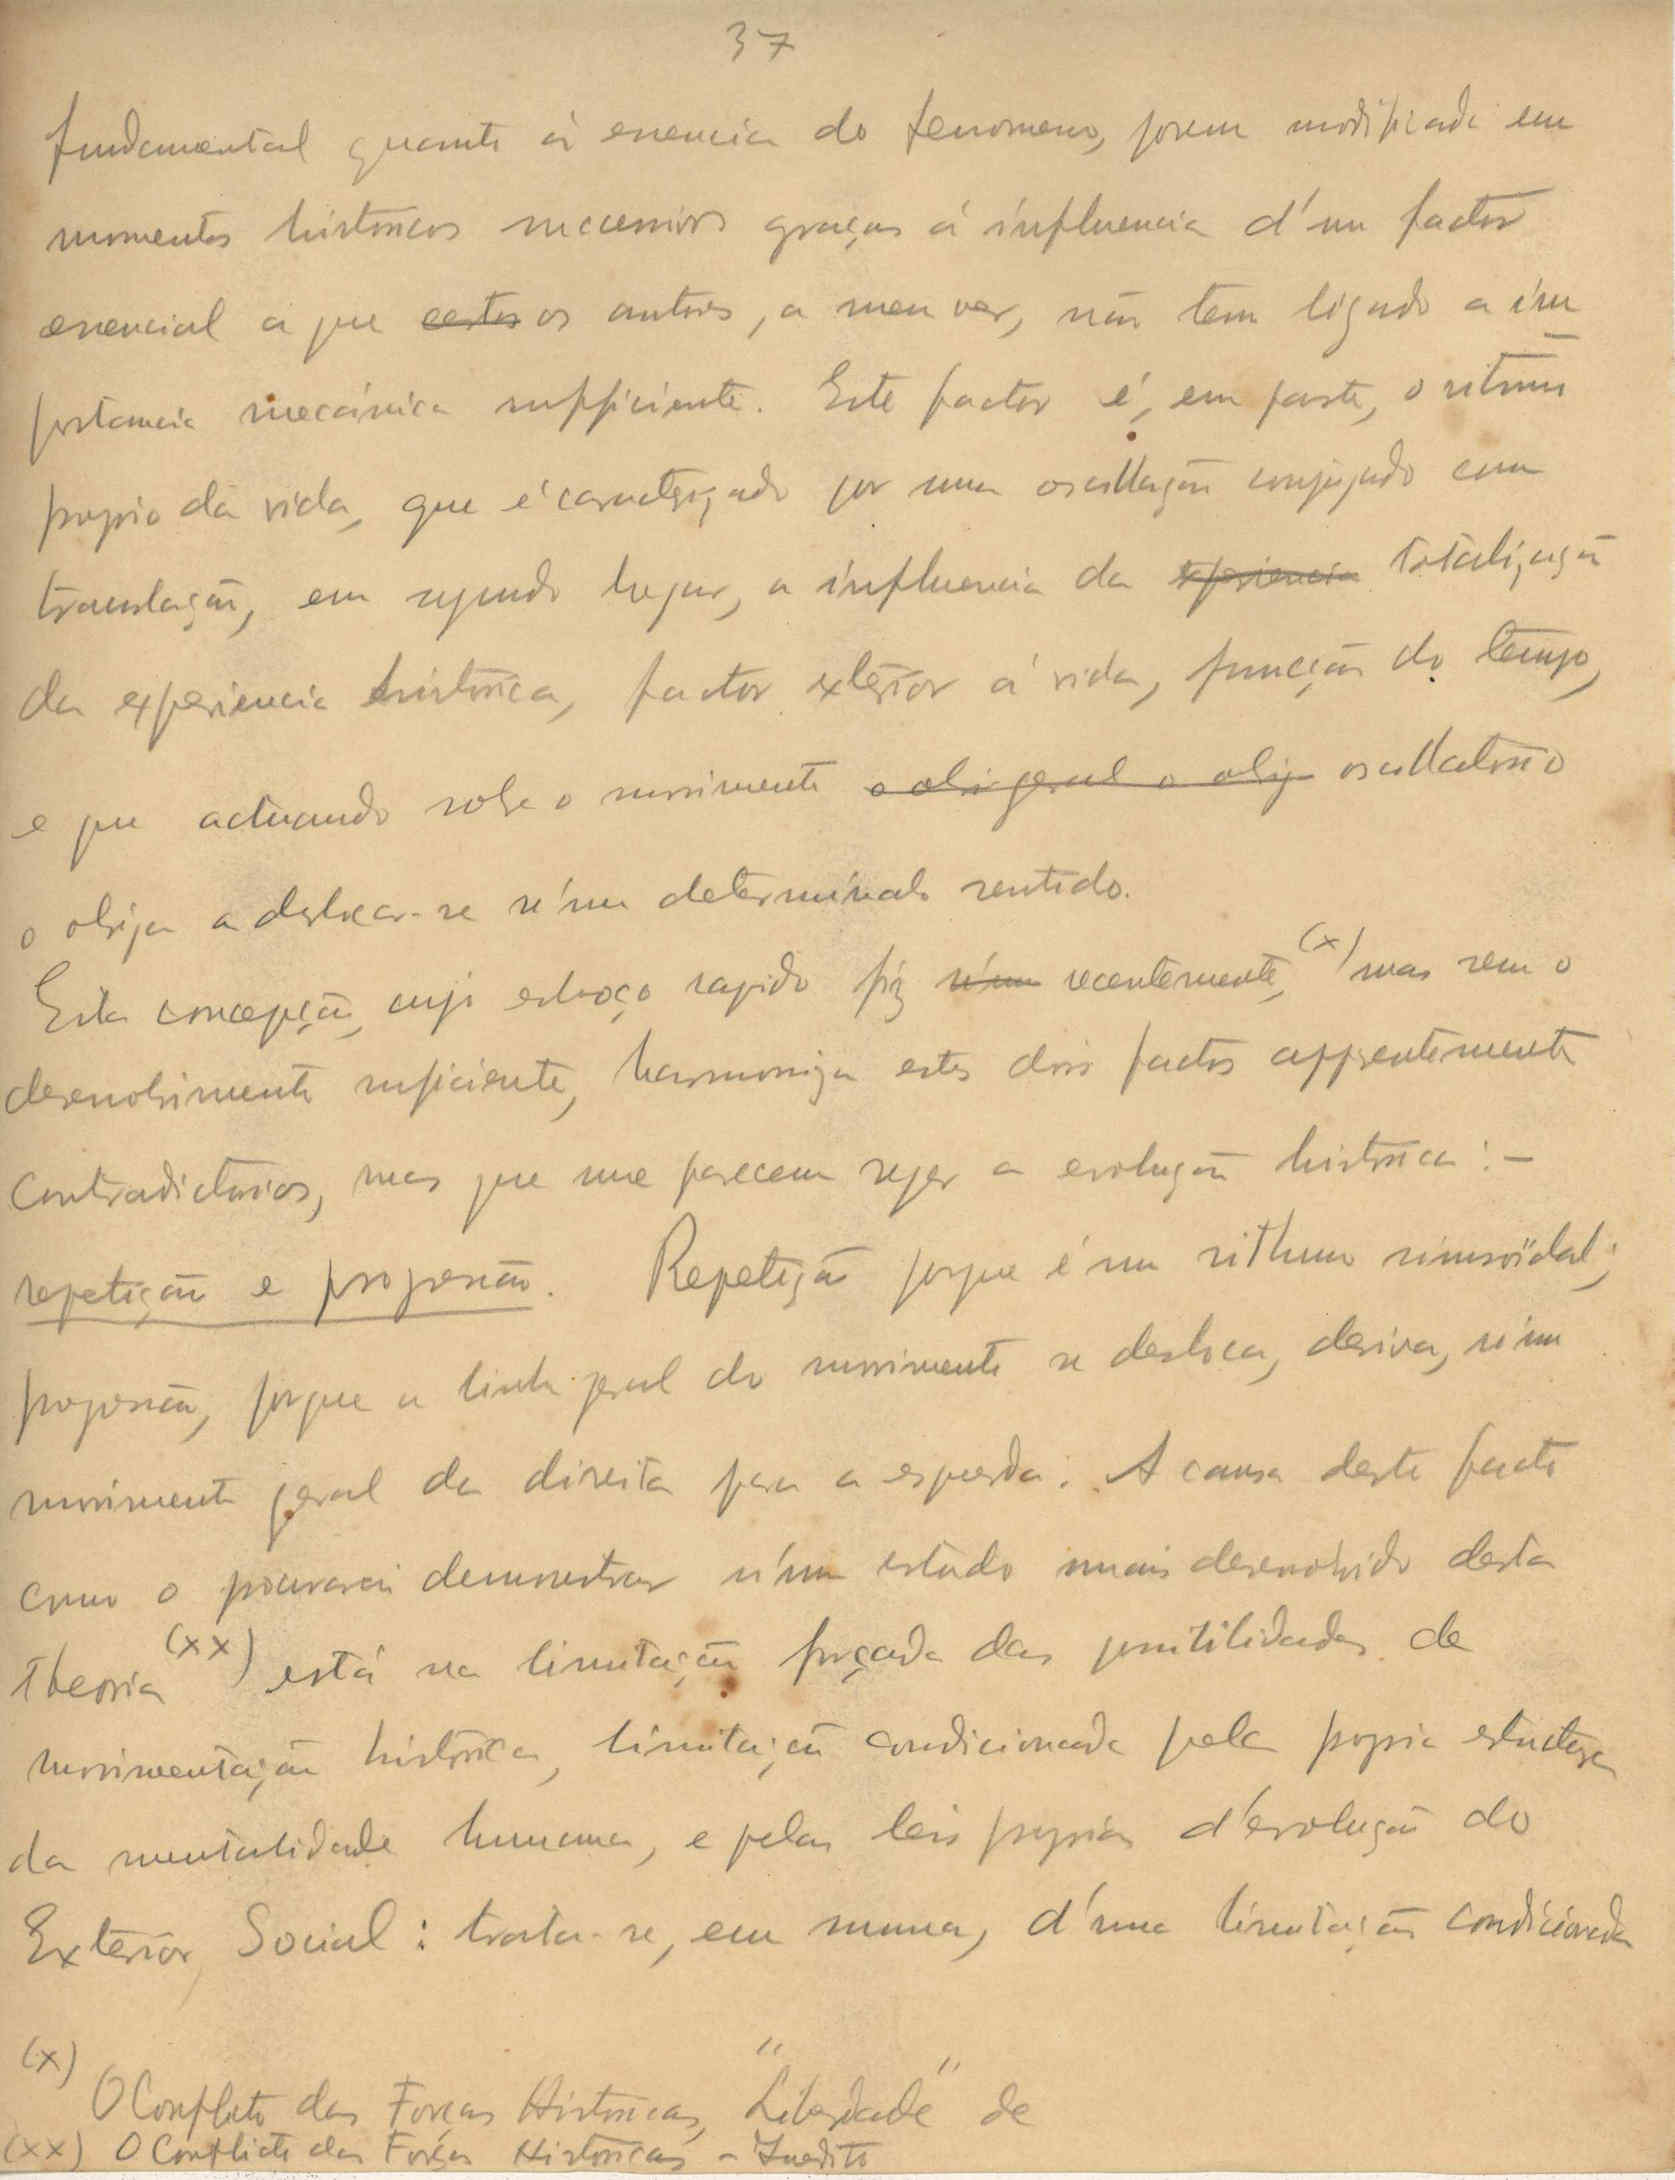 37
fundamental quanto á essencia do fenomeno, porem modificada em
momentos historicos successivos graças á influencia d'um factor
essencial a que certos os autores, a meu ver, não tem ligado a im
portancia mecánica sufficiente. Este factor é, em parte, o ritmo
proprio da vida, que é caracterizado por uma oscillação conjugado com
translação, em segundo lugar, a influencia da experiencia totalização
da experiencia historica, factor exterior á vida, funcção do tempo,
e que actuando sobre o movimento o obri geral o obriga oscillatorio
o obriga a deslocar-se n'um determinado sentido.
Esta concepção, cujo esboço rapido fiz n'um recentemente, (x) mas sem o
desenvolvimento suficiente, harmoniza estes dois factos apparentemente
contradictorios, mas que me parecem reger a evolução historica: -
repetição e progressão. Repetição porque é um rithmo sinusoïdal;
progressão, porque a linha geral do movimento se desloca, deriva, n'um
movimento geral da direita para a esquerda. A causa deste facto
como o procurarei demonstrar n'um estudo mais desenvolvido desta
theoria (xx) está na limitação forçada das possibilidades de
movimentação historica, limitação condicionada pela propria estructura
da mentalidade humana, e pelas leis proprias d'evolução do
Exterior Social: trata-se, em summa, d'uma limitação condicionada
(x)
O Conflito das Forças Historicas, "Liberdade" de
(xx) O Conflicto das Forças Historicas - Inedito